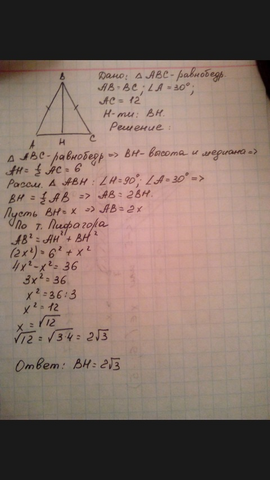 B
A
H
C
Дано: △ABC-равнобедр.
AB=BC; ∠A=30°;
AC=12
Н-ти: BH.
Решение:
△ABC-равнобедр => BH-высота и медиана =>
AH=½ AC=6
Рассм. △ABH: ∠H=90°, ∠A=30° =>
BH=½ AB => AB=2BH.
Пусть BH=x => AB=2x
По т. Пифагора
AB²=AH²+BH²
(2x²)=6²+x²
4x²-x²=36
3x²=36
x²=36:3
x²=12
x=√12
√12=√3·4=2√3
Ответ: BH=2√3